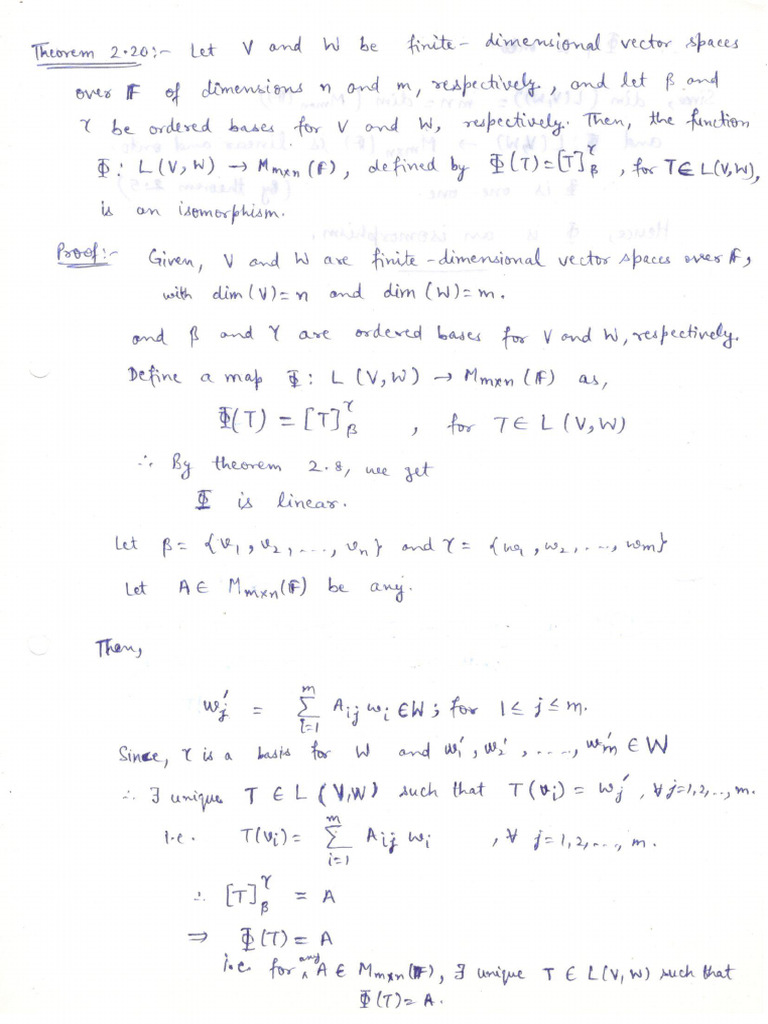 Theorem 2.20:- Let V and W be finite-dimensional vector spaces
over F of dimensions n and m, respectively, and let β and
γ be ordered bases for V and W, respectively. Then, the function
Φ: L(V,W) → Mm×n(F), defined by Φ(T)=[T]_β^γ, for T∈L(V,W),
is an isomorphism.
Proof:- Given, V and W are finite-dimensional vector spaces over F,
with dim(V)=n and dim(W)=m.
and β and γ are ordered bases for V and W, respectively.
Define a map Φ: L(V,W) → Mm×n(F) as,
Φ(T) = [T]_β^γ , for T∈L(V,W)
∴ By theorem 2.8, we get
Φ is linear.
Let β = {v1, v2, ..., vn} and γ = {w1, w2, ..., wm}
Let A∈ Mm×n(F) be any.
Then,
wj' = Σ_{i=1}^{m} Aij wi ∈W; for 1≤j≤m.
Since, γ is a basis for W and w1', w2', ...., wm' ∈ W
∴ ∃ unique T∈L(V,W) such that T(vi) = wj', ∀ j=1,2,..,m.
i.e. T(vi) = Σ_{i=1}^{m} Aij wi , ∀ j=1,2,..., m.
∴ [T]_β^γ = A
⇒ Φ(T) = A
i.e. for any A∈ Mm×n(F), ∃ unique T∈L(V,W) such that
Φ(T) = A.